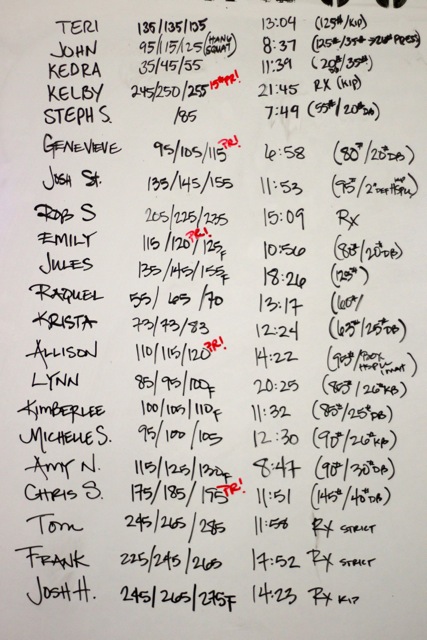 TERI 135/135/135 13:04 (125#/KIP)
JOHN 95/115/125 (HANG SQUAT) 8:37 (125#/35# PRESS)
KEDRA 35/45/55 11:39 (20#/35#)
KELBY 245/250/255 15# PR! 21:45 RX (KIP)
STEPH S. /85 7:49 (55#/20#DB)
GENEVIEVE 95/105/115 PR! 6:58 (80#/20#DB)
JOSH St. 135/145/155 11:53 (95#/2"
ROB S 205/225/235 15:09 RX
EMILY 115/120 PR!/125F 10:56 (80#/20#DB)
JULES 135/145/155F 18:26 (125#)
RAQUEL 55/65/70 13:17 (60#/
KRISTA 73/73/83 12:24 (65#/25#DB)
ALLISON 110/115/120 PR! 14:22 (95#/BOX HSPU
LYNN 85/95/100F 20:25 (85#/26#KB)
KIMBERLEE 100/105/110F 11:32 (85#/25#DB)
MICHELLE S. 95/100/105 12:30 (90#/26#KB)
AMY N. 115/125/130F 8:47 (90#/30#DB)
CHRIS S. 175/185/195 PR! 11:51 (145#/40#DB)
TOM 245/265/285 11:58 RX STRICT
FRANK 225/245/265 17:52 RX STRICT
JOSH H. 245/265/275F 14:23 RX KIP